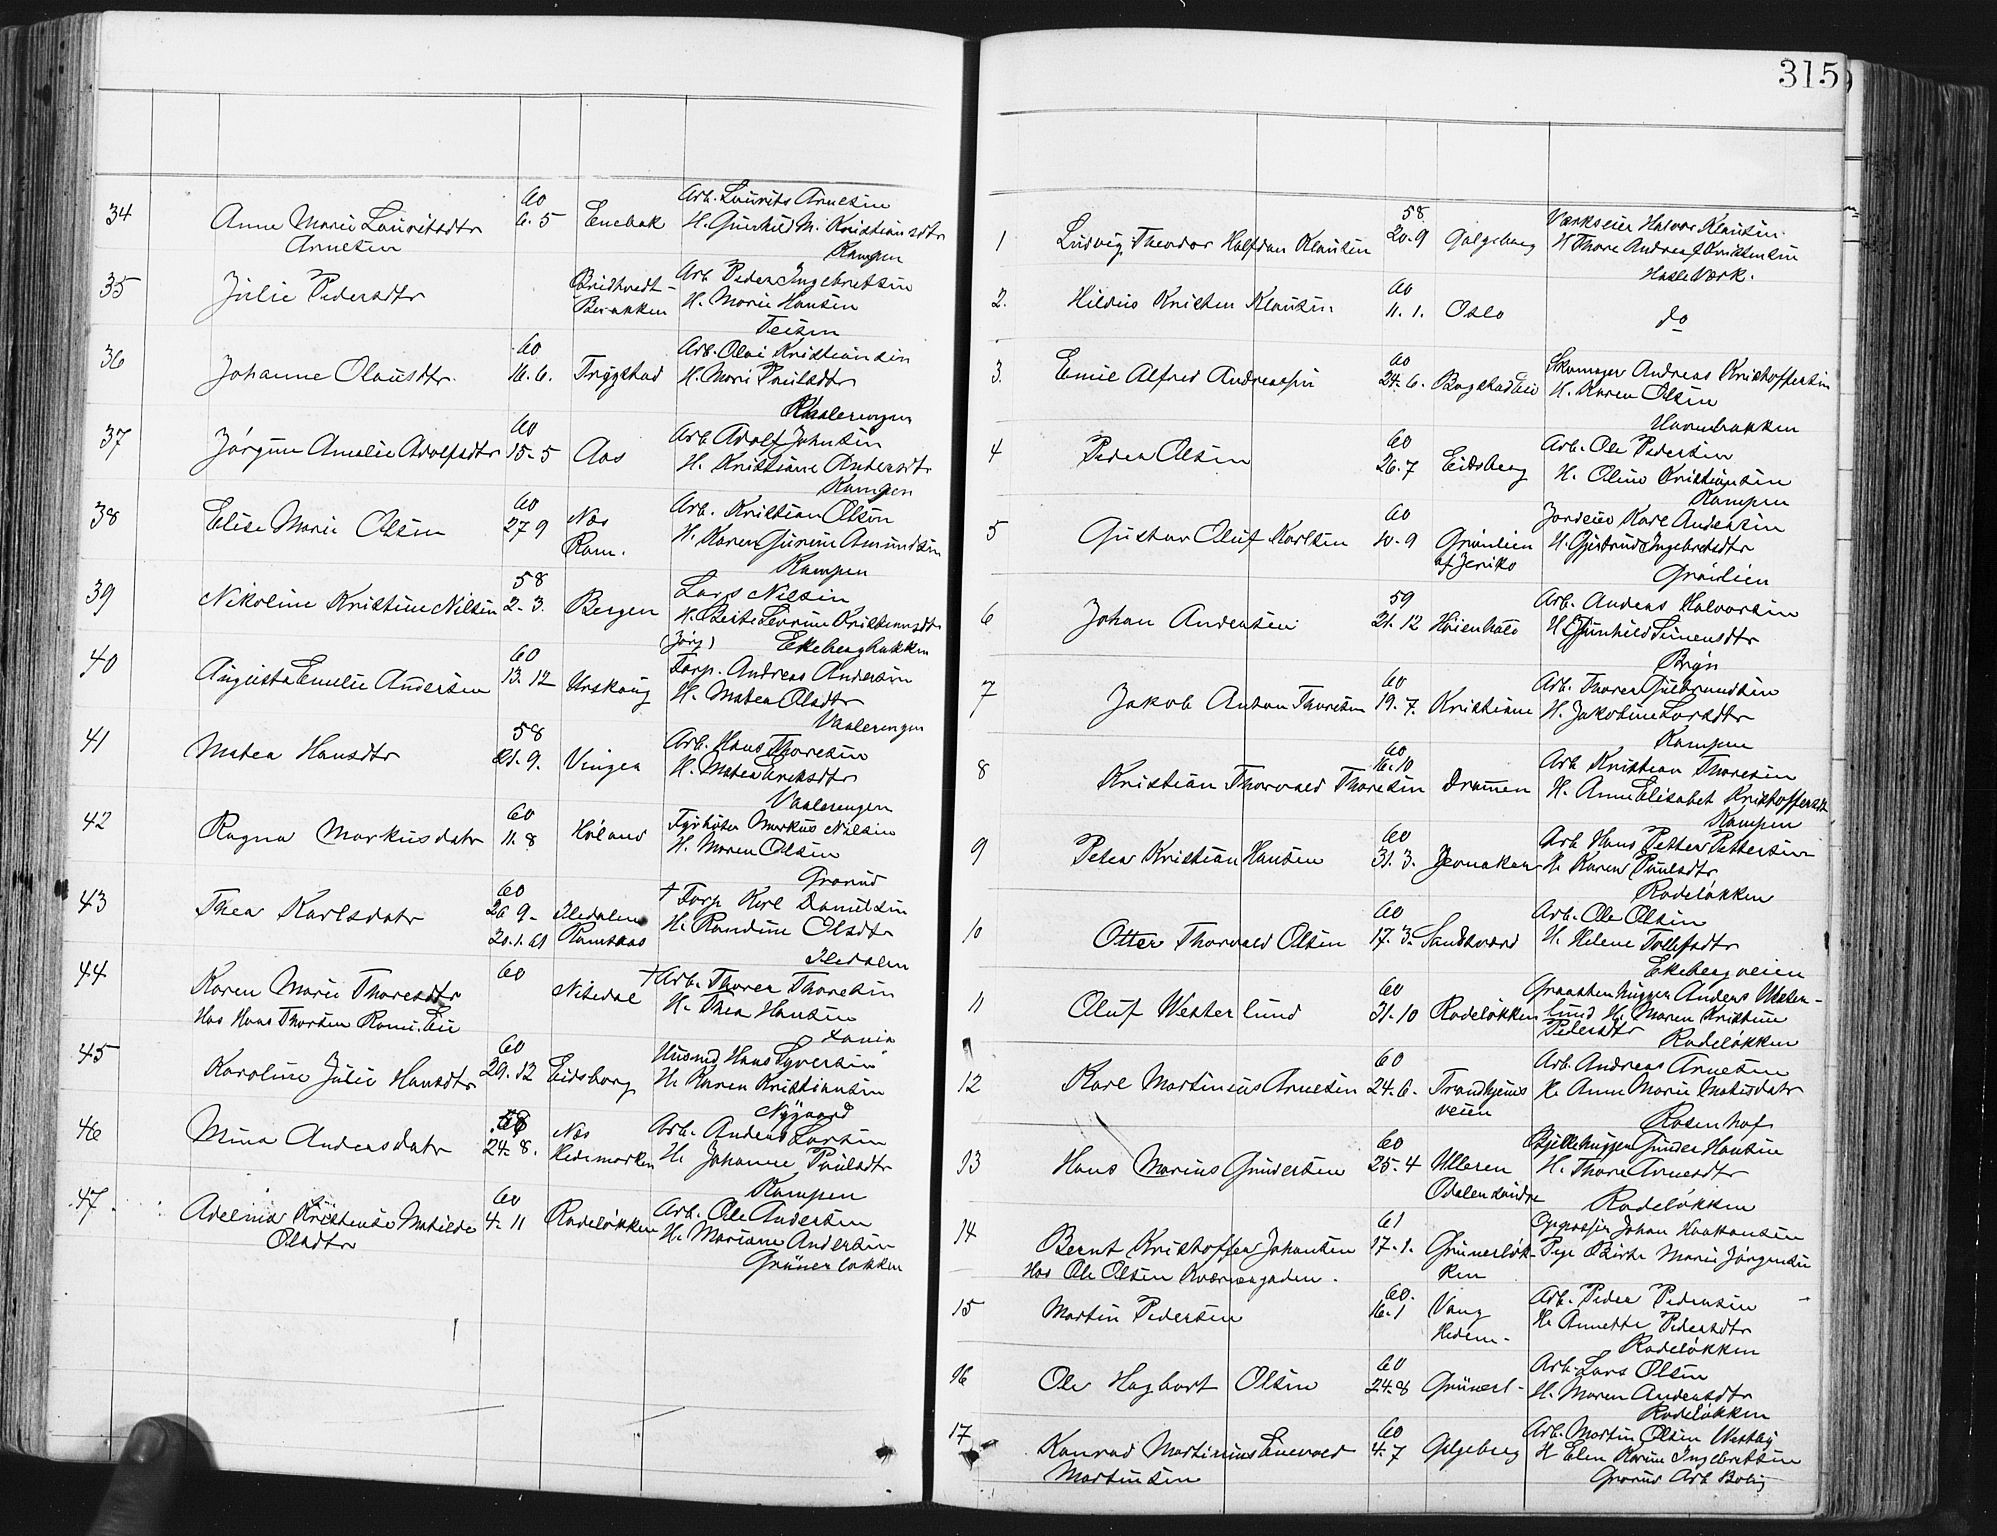 34
60
Arb. Laurits Arnesen
Anne Marie Lauritsdtr
6. 5
Enebak
H. Gunhild M. Kristiansdtr
Arnesen
Kampen
35
Julie Pedersdtr
Bridtvedt-
Arb. Peder Ingebretsen
Berakken
H. Marie Hansen
Teisen
36
60
Arb. Olai Kristiansen
Johanne Olausdtr.
16. 6.
Trygstad
H. Mari Paulsdtr
Vaalerengen
37
60
Arb. Adolf Johnsen
Jørgine Amalie Adolfsdtr
15-5
Aas
H. Kristiane Andersdtr
Kampen
38
60
Arb. Kristian Olsen
Elise Marie Olsen
27 9
Næs
Rom.
H. Karen Gurine Amundsen
Kampen
39
58
Lars Nilsen
Nikoline Kristine Nilsen
2. 3.
Bergen
H. Berte Kristensdtr
Ekebergbakken
40
60
Torp. Andreas Andersen
Augusta Emilie Andersen
13. 12
Urskoug
H. Matea Olsdtr
Vaalerengen
41
58
Arb. Hans Thoresen
Matea Hansdtr
21. 9.
Vinger
H. Matea Eriksdtr
Vaalerengen
42
60
Fyrbøter Markus Nilsen
Ragna Markusdatr
11. 8
Høland
H. Maren Olsen
Grorud
43
60
† Torp Karl Danielsen
Thea Karlsdatr
26 9-
Iledalen
20. 1. 61
Ramsaas
H. Randine Olsdtr
Iledalen
44
60
† Arb. Thorer Thoresen
Karen Marie Thoresdtr
Nitedal
H. Thea Hansen
Hos Hans Thorsen Romi. Eie
45
60
Husmd Hans Syversen
Karoline Julie Hansdtr
29. 12
Eidsberg
H. Karen Kristiansen
Nygaard
46
58
Arb. Anders Larsen
Mina Andersdatr
24. 8.
Næs
Hedemarken
H. Johanne Paulsdtr
Kampen
47
60
Arb. Ole Andersen
Adelina Kristense Matilde
4. 11
Rodeløkken
H. Mariane Andersen
Olsdtr
Grünerløkken
315
58
Værkseier Halvor Klausen
1
Ludvig Theodor Halfdan Klausen
20. 9
Galgeberg
H Thora Andrea f. Kristensen
Hasle Værk.
2.
60
Hildus Kristen Klausen
11. 1.
Oslo
do
3.
60
Skomager Andreas Kristoffersen
Emil Alfred Andreassen
24. 6.
Bogstadveien
H. Karen Olsen
4
60
Arb. Ole Pedersen
Peder Olsen
26. 7
Eidsberg
H. Oline Kristiansen
Kampen
5
60
Jordeier Karl Andersen
Gustav Oluf Karlsen
10. 9
Grønlien
af Jeriko
H. Gjertrud Ingebretsdtr
Grønlien
6
59
Arb. Anders Halvorsen
Johan Andersen
21. 12
Høienhald
H. Gunhild Simensdtr
Bryn
7
60
Arb. Thorer Gulbrandsen
Jakob Anton Thoresen
19. 7.
Kristiane
H. Jakobine Larsdtr
Kampen
8
60
16. 10
Arb. Kristian Thoresen
Kristian Thorvald Thoresen
Dramen
H. Anne Elisabet Kristoffersdtr
Kampen
9
60
Arb Hans Petter Pettersen
Peter Kristian Hansen
31. 3.
Jevnaker
H. Karen Paulsdtr
Rodeløkken
10
60
Arb. Ole Olsen
Otter Thorvald Olsen
17. 3.
Sandsværd
H. Helene Tollefsdtr
Ekebergveien
11
60
Graastenhugger Anders Wester-
Oluf Westerlund
31. 10
Rodeløkken
lund H. Maren Kristine
Pedersdtr
Rodeløkken
12
60
Arb. Andreas Arnesen
Karl Martinius Arnesen
24. 6.
Trondhjems
veien
H. Anne Marie Matisdatr
Rosenhof
13
60
Bjelkehugger Gunder Hansen
Hans Marius Gundersen
25. 4
Ulleren
Odalen søndre
H. Thora Arnesdtr
Rodeløkken
14
61
Oppasser Johan Haakonsen
Bernt Kristoffer Johansen
17. 1.
Grünerløk-
ken
Pige Birte Marie Jørgensen
Hos Ole Olsen Kværnergaden.
15
60.
Arb. Peder Pedersen
Martin Pedersen
16. 1
Vang
Hedem-
H. Annette Pedersdtr
Rodeløkken
16
60
Arb. Lars Olsen
Ole Hagbart Olsen
24. 8
Grünerl-
H. Maren Andersdtr
Rodeløkken
17
60
Arb. Martin Olsen Westby
Konrad Martinius Enevold
4. 7
Galgeberg
H Elen Karine Ingebretsen
Martinsen
Grorud Arb Bolig